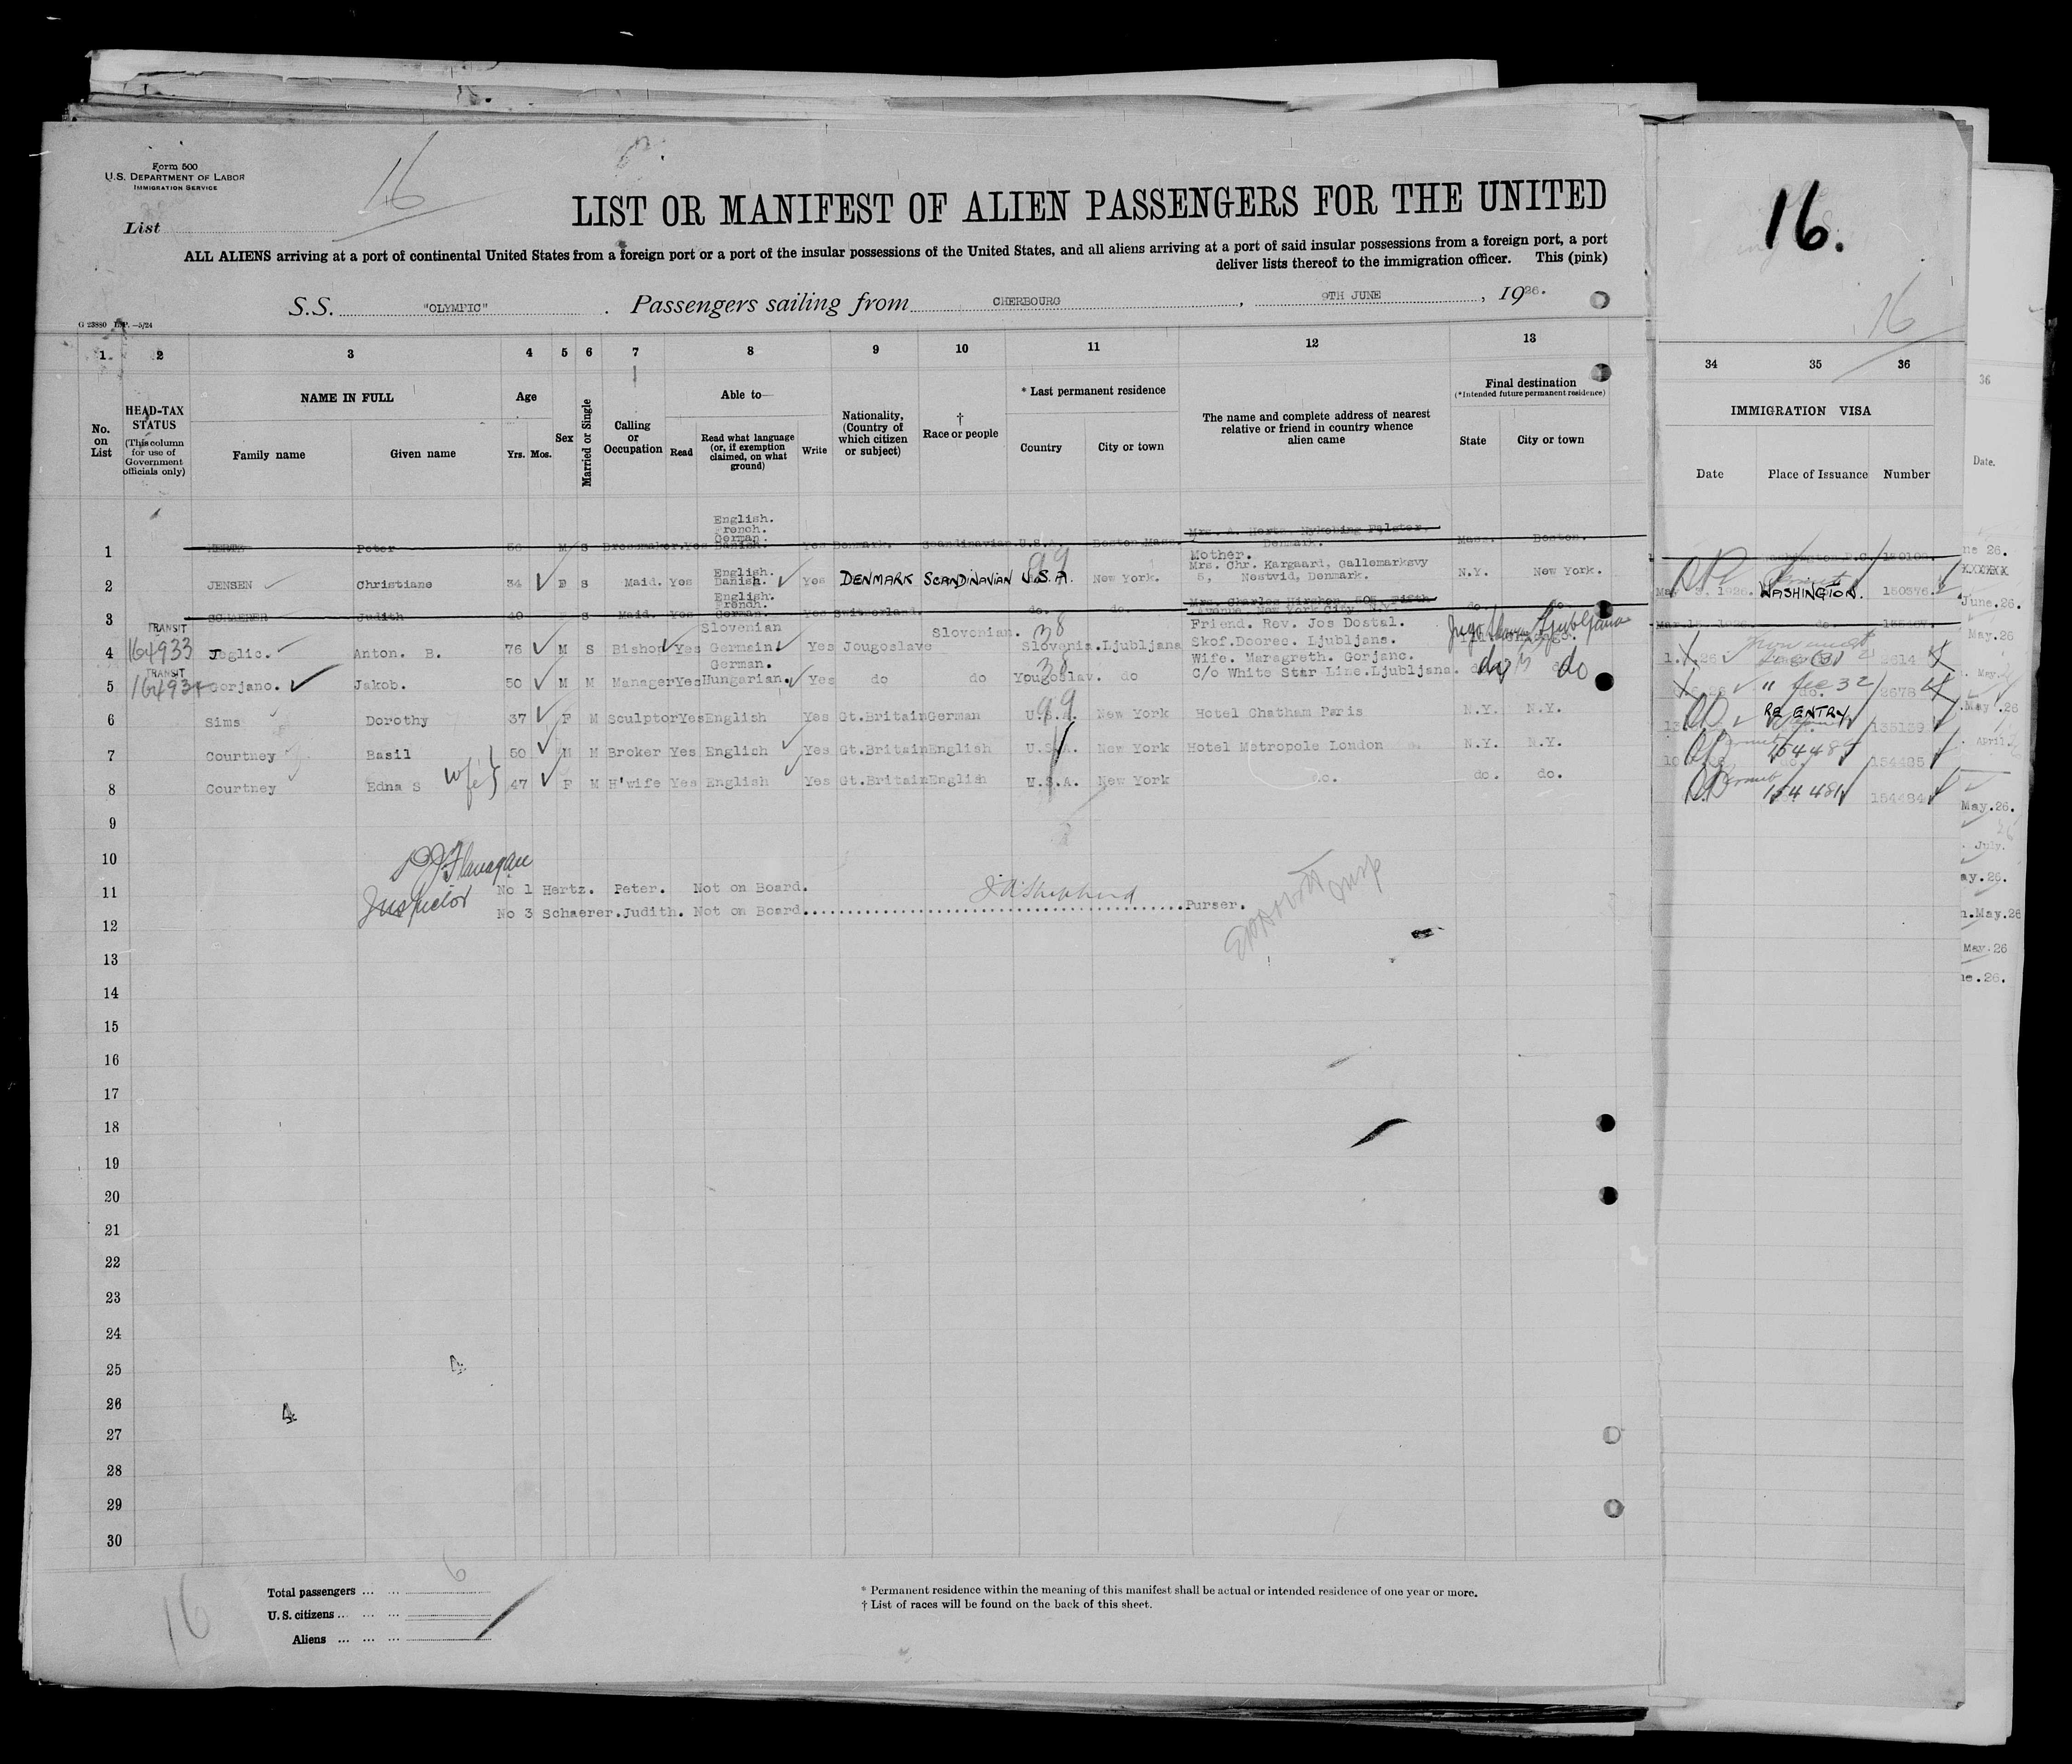 Form 500
U.S. DEPARTMENT OF LABOR
IMMIGRATION SERVICE
16
List
LIST OR MANIFEST OF ALIEN PASSENGERS FOR THE UNITED
16.
16
ALL ALIENS arriving at a port of continental United States from a foreign port or a port of the insular possessions of the United States, and all aliens arriving at a port of said insular possessions from a foreign port, a port
deliver lists thereof to the immigration officer. This (pink)
S.S. "OLYMPIC". Passengers sailing from CHERBOURG, 9TH JUNE, 1926.
1 2 3 4 5 6 7 8 9 10 11 12 13 34 35 36
No. on List
HEAD-TAX STATUS (This column for use of Government officials only)
NAME IN FULL
Family name Given name
Age
Yrs. Mos.
Sex
Married or Single
Calling or Occupation
Able to—
Read Read what language (or, if exemption claimed, on what ground) Write
Nationality, (Country of which citizen or subject)
† Race or people
* Last permanent residence
Country City or town
The name and complete address of nearest relative or friend in country whence alien came
Final destination
(*Intended future permanent residence)
State City or town
IMMIGRATION VISA
Date Place of Issuance Number
1 Peter 56 M S Dressmaker. Yes English. French. German. Danish. Yes Denmark. Scandinavian U.S.A. Boston Mass. Mrs. A. Hertz. Nykobing Falster. Denmark. Mass. Boston.
2 JENSEN Christiane 34 F S Maid. Yes English. Danish. Yes DENMARK SCANDINAVIAN U.S.A. 99 New York. Mother. Mrs. Chr. Kargaard, Gallemarksvy 5, Nestvid, Denmark. N.Y. New York. 1926. WASHINGTON. 150376.
3 SCHAERER Judith 40 F S Maid. Yes English. French. German. Yes Switzerland. do. do. Mrs. Charles Hirshon, 505, Fifth Avenue New York City. N.Y. do.
4 TRANSIT 164933 Jeglic. Anton. B. 76 M S Bishop Yes Slovenian German Yes Jougoslave Slovenian. 38 Slovenia. Ljubljana Friend. Rev. Jos Dostal. Skof.Dooree. Ljubljana. Jugo Ljubljana 2614
5 TRANSIT Gorjanc. Jakob. 50 M M Manager Yes German. Hungarian. Yes do do 38 Yougoslav. do Wife. Maragreth. Gorjanc. C/o White Star Line.Ljubljana. do do 2678
6 Sims Dorothy 37 F M Sculptor Yes English Yes Gt.Britain German 99 U.S.A. New York Hotel Chatham Paris N.Y. N.Y. RE ENTRY
7 Courtney Basil 50 M M Broker Yes English Yes Gt.Britain English U.S.A. New York Hotel Metropole London N.Y. N.Y. 154485
8 Courtney Edna S wife 47 F M H'wife Yes English Yes Gt.Britain English U.S.A. New York do. do. do. 154484
9
10
P J Flanagan
11 Inspector No 1 Hertz. Peter. Not on Board.
No 3 Schaerer.Judith. Not on Board. J A Shepherd Purser.
12
13
14
15
16
17
18
19
20
21
22
23
24
25
26
27
28
29
30
Total passengers ... ... 6
U.S. citizens ... ... ...
Aliens ... ... ...
16
* Permanent residence within the meaning of this manifest shall be actual or intended residence of one year or more.
† List of races will be found on the back of this sheet.
36
Date.
ne 26.
June.26.
May.26
May.26
April.
May.26.
July.
ay.26.
May.26
May.26